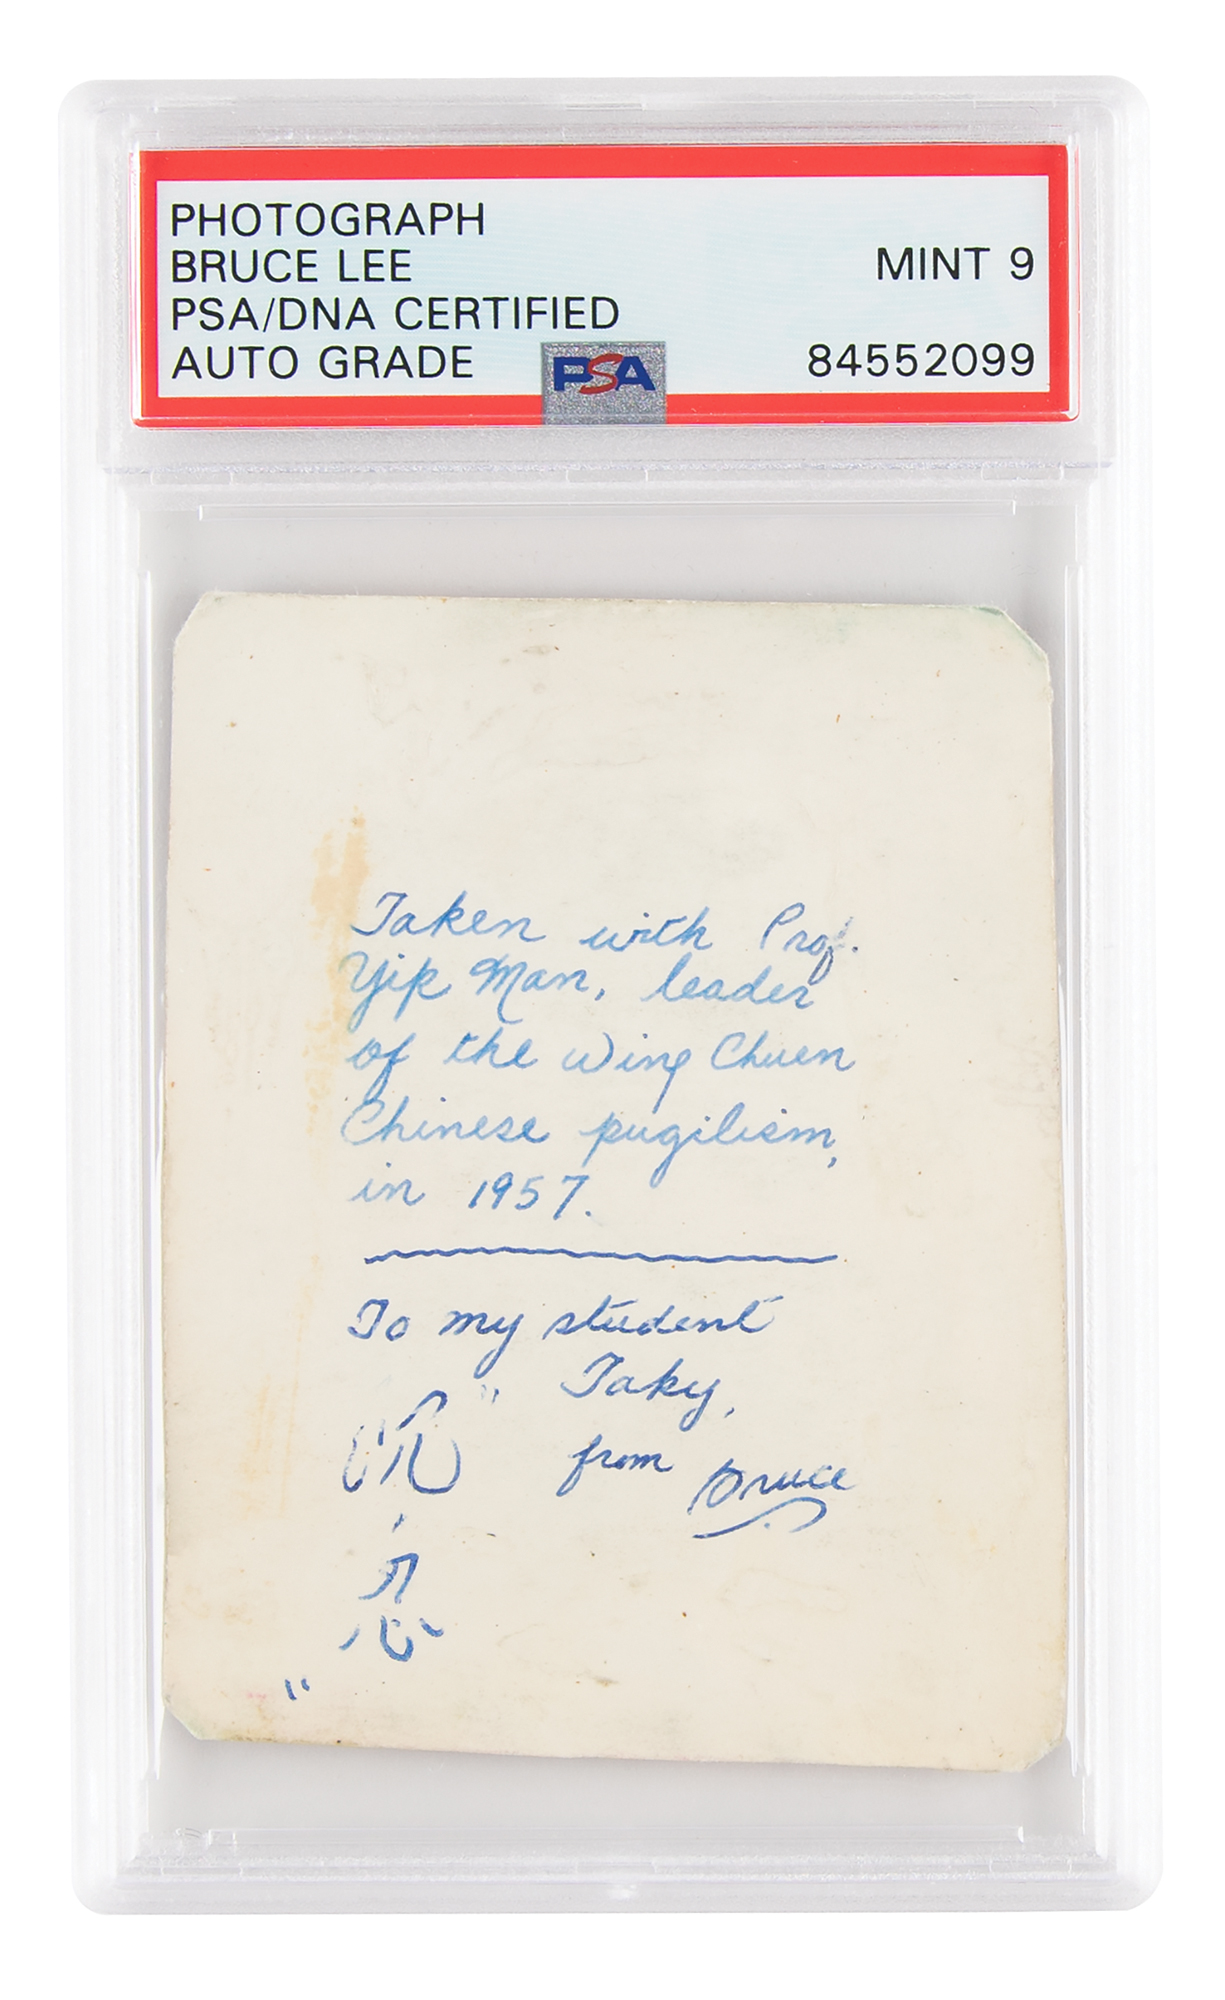 PHOTOGRAPH
BRUCE LEE
MINT 9
PSA/DNA CERTIFIED
AUTO GRADE
84552099
PSA
Taken with Prof.
Yip Man, leader
of the Wing Chuen
Chinese pugilism,
in 1957.
To my student
Taky,
from Bruce